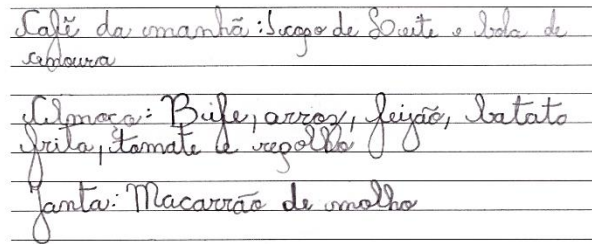 Café da manhã: Sucopo de Soeite e bola de
cenoura
Almoço: Bife, arroz, feijão, batato
frita, tomate e repolho
Janta: Macarrão de molho